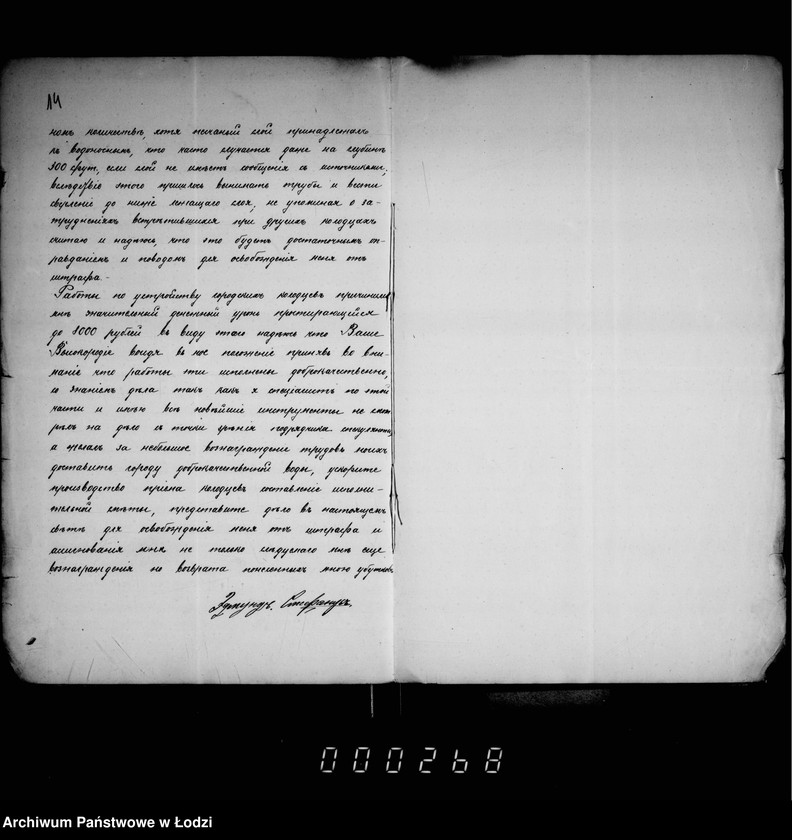 14
номъ количествѣ, хотя песчаный слой принадлежалъ
къ водоноснымъ, что часто случается даже на глубинѣ
300 фут, если слой не имѣетъ сообщенія съ источниками,
вслѣдствіе этого пришлось вынимать трубы и вести
сверленіе до ниже лежащаго слоя, не упоминая о за-
трудненіяхъ встрѣтившихся при другихъ колодцахъ
считаю и надѣюсь, что это будетъ достаточнымъ оп-
равданіемъ и поводомъ для освобожденія меня отъ
штрафа. -
Работы по устройству городскихъ колодцевъ причинили
мнѣ значительный денежный уронъ простирающійся
до 8000 рублей въ виду этого надѣюсь что Ваше
Высокородіе войдя въ мое положеніе принявъ во вни-
маніе что работы эти исполнены доброкачественно,
со знаніемъ дѣла такъ какъ я спеціалистъ по этой
части и имѣю всѣ новѣйшіе инструменты не смот
рѣлъ на дѣло съ точки зрѣнія подрядчика спекулянта,
а желалъ за небольшое вознагражденіе трудовъ моихъ
доставить городу доброкачественной воды, ускорите
производство пріема колодцевъ составленіе исполни-
тельной смѣты, представите дѣло въ настоящемъ
свѣтѣ для освобожденія меня отъ штрафа и
ассигнованія мнѣ не только слѣдуемаго мнѣ еще
вознагражденія но возврата понесенныхъ мною убытковъ
Эдмундъ
000268
Archiwum Państwowe w Łodzi